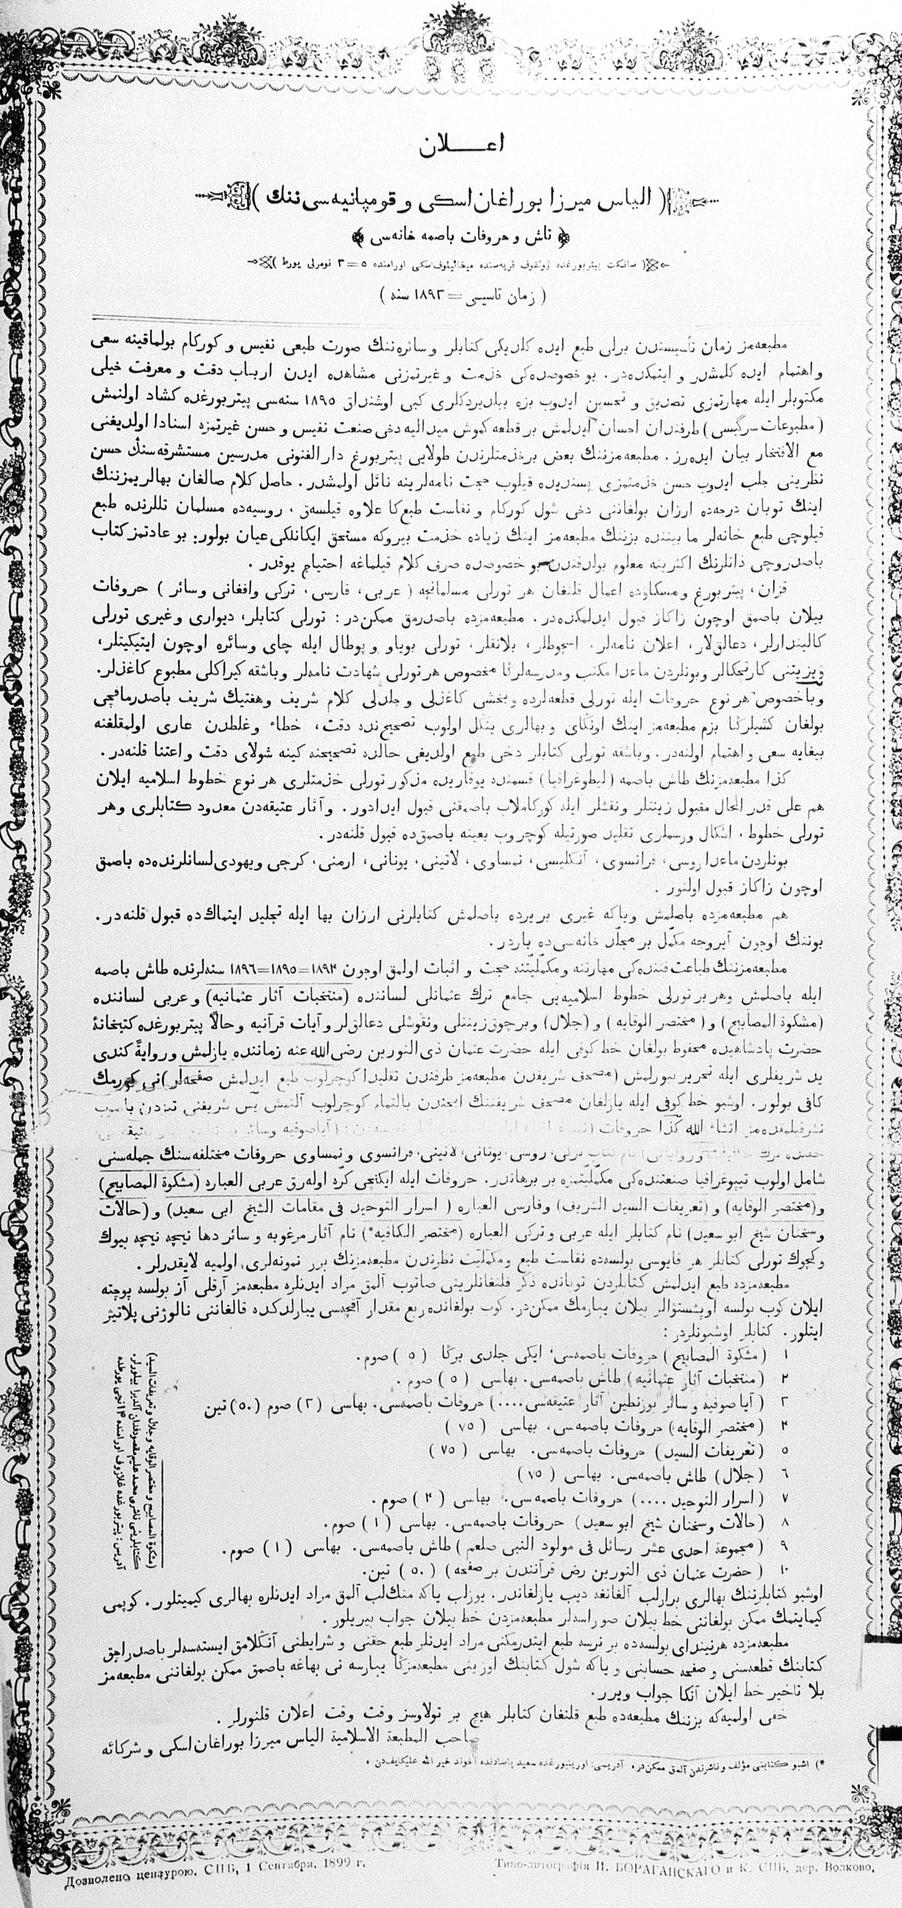 اعـــــلان
( الیاس میرزا بوراغان‌اسکی و قومپانیه‌سی ننك )
تاش و حروفات باصمه خانه‌سی
( سانکت پیتربورغده ولقوف قریه‌سنده میخائیلوف‌اسکی اورامنده ٥=٣ نومرلی یورط )
( زمان تاسیسی = ١٨٩٣ سنه )
مطبعه‌مز زمان تأسیسندن برلی طبع ایده کلدیکی کتابلر و سائره‌ننك صورت طبعی نفیس و کورکام بولماقینه سعی
و اهتمام ایده کلمشدر و ایتمکده‌در. بو خصوصده‌کی خدمت و غیرتمزنی مشاهده ایدن ارباب دقت و معرفت خیلی
مکتوبلر ایله مهارتمزی تصدیق و تحسین ایدوب بزه بیلدردکلری کبی اوشنداق ١٨٩٥ سنه‌سی پیتربورغده کشاد اولنمش
(مطبوعات سرگیسی) طرفندان احسان ایدلمش بر قطعه کموش میدالیه دخی صنعت نفیس و حسن غیرتمزه اسنادا اولدیغنی
مع الافتخار بیان ایده‌رز. مطبعه‌مزننك بعض بر خدمتلرندن طولایی پیتربورغ دار الفنونی مدرسین مستشرقه‌سنك حسن
نظرینی جلب ایدوب حسن خدمتمزی پسندیده قیلوب حجت نامه‌لرینه نائل اولمشدر. حاصل کلام صالغان بهالریمزننك
اینك توبان درجه‌ده ارزان بولغاننی دخی شول کورکام و نفاست طبع‌کا علاوه قیلسه‌ق، روسیه‌ده مسلمان تللرنده طبع
قیلوچی طبع خانه‌لر ما بیننده بزننك مطبعه‌مز اینك زیاده خدمت بیروکه مستحق ایکانلکی عیان بولور: بو عادتمز کتاب
باصدروچی ذاتلرنك اکثرینه معلوم بولدقندن بو خصوصده صرف کلام قیلماغه احتیاج یوقدر.
قزان، پیتربورغ و مسکاوده اعمال قلنغان هر تورلی مسلمانچه (عربی، فارسی، ترکی وافغانی وسائر) حروفات
بیلان باصمق اوچون زاکاز قبول ایدلمکده‌در. مطبعه‌مزده باصدرمق ممکن‌در: تورلی کتابلر، دیواری و غیری تورلی
کالیندارلر، دعالق‌لار، اعلان نامه‌لر، اسچوطلر، بلانقلر، تورلی بویاو و پوطال ایله چای وسائره اوچون ایتیکیتلر،
ویزیتنی کارتچکالر وبونلردن ماعدا مکتب ومدرسه‌لرکا مخصوص هر تورلی شهادت نامه‌لر وباشقه کیراکلی مطبوع کاغذلر.
وباخصوص هر نوع حروفات ایله تورلی قطعه‌لرده ویخشی کاغذلی و جلدلی کلام شریف وهفتیك شریف باصدرماقچی
بولغان کشیلرکا بزم مطبعه‌مز اینك اونکای و بهالری یینکل اولوب تصحیح‌نده دقت، خطاء وغلطدن عاری اولمقلغنه
بیغایه سعی واهتمام اولنه‌در. وباشقه تورلی کتابلر دخی طبع اولدیغی حالده تصحیحنه کینه شولای دقت و اعتنا قلنه‌در.
کذا مطبعه‌مزنك طاش باصمه (لیطوغرافیا) قسمنده یوقاریده مذکور تورلی خدمتلری هر نوع خطوط اسلامیه ایلان
هم علی قدر الحال مقبول زینتلر ونقشلر ایله کورکاملاب باصمقنی قبول ایدادور. وآثار عتیقه‌دن معدود کتابلری وهر
تورلی خطوط، اشکال ورسملری تقلید صورتیله کوچروب بعینه باصمق‌ده قبول قلنه‌در.
بونلردن ماعدا روسی، فرانسوی، آنکلیسی، نمساوی، لاتینی، یونانی، ارمنی، کرجی ویهودی لسانلرنده‌ده باصمق
اوچون زاکاز قبول اولنور.
هم مطبعه‌مزده باصلمش ویاکه غیری بر یرده باصلمش کتابلرنی ارزان بها ایله تجلید ایتماك‌ده قبول قلنه‌در.
بوننك اوچون آیروجه مکمّل بر مجلّد خانه‌سی‌ده باردر.
مطبعه‌مزننك طباعت فننده‌کی مهارتنه ومکمّلیّتنه حجت و اثبات اولمق اوچون ١٨٩٤=١٨٩٥=١٨٩٦ سنه‌لرنده طاش باصمه
ایله باصلمش وهر بر تورلی خطوط اسلامیه‌یی جامع ترك عثمانلی لساننده (منتخبات آثار عثمانیه) و عربی لساننده
(مشکوة المصابیح) و (مختصر الوقایه) و (جلال) وبرچوق زینتلی ونقوشلی دعالق‌لر وآیات قرآنیه وحالاً پیتربورغده کتبخانهٔ
حضرت پادشاهیده محفوظ بولغان خط کوفی ایله حضرت عثمان ذی النورین رضی الله عنه زماننده یازلمش وروایةً کندی
ید شریفلری ایله تحریر بیورلمش (مصحف شریفدن مطبعه‌مز طرفندن تقلیدا کوچرلوب طبع ایدلمش صفحه‌لر) نی کورمك
کافی بولور. اوشبو خط کوفی ایله یازلغان مصحف شریفننك
نشر قیلمقده‌مز انشاء الله کذا حروفات
ترکی، روسی، یونانی، لاتینی، فرانسوی و نمساوی حروفات مختلفه‌سنك جمله‌سنی
شامل اولوب تیپوغرافیا صنعتنده‌کی مکمّلیّتمزه بر برهاندر. حروفات ایله ایکنچی کرّه اوله‌رق عربی العباره (مشکوة المصابیح)
و(مختصر الوقایه) و (تعریفات السید الشریف) وفارسی العباره (اسرار التوحید فی مقامات الشیخ ابی سعید) و (حالات
وسخنان شیخ ابو سعید) نام کتابلر ایله عربی وترکی العباره (مختصر الکافیه*) نام آثار مرغوبه و سائر دها نیچه نیچه بیوك
وکچوك تورلی کتابلر هر قایوسی بولسه‌ده نفاست طبع ومکملیّت نظرندن مطبعه‌مزنك برر نمونه‌لری اولمیه لایقدرلر.
مطبعه‌مزده طبع ایدلمش کتابلردن توبانده ذکر قلنغانلرینی صاتوب آلمق مراد ایدنلره مطبعه‌مز آرقلی آز بولسه پوچته
ایلان کوب بولسه اوپشستوالر بیلان یبارمك ممکن‌در. کوب بولغانده ربع مقدار آقچه‌سی یبارلدکده قالغاننی نالوژنی پلاتیژ
ایتلور. کتابلر اوشبونلردر:
١ (مشکوة المصابیح) حروفات باصمه‌سی، ایکی جلدی برکا (٥) صوم.
٢ (منتخبات آثار عثمانیه) طاش باصمه‌سی. بهاسی (٥) صوم.
٣ (آیا صوفیه و سائر بوزنطین آثار عتیقه‌سی....) حروفات باصمه‌سی. بهاسی (٢) صوم (٥٠) تین
٤ (مختصر الوقایه) حروفات باصمه‌سی، بهاسی (٧٥)
٥ (تعریفات السید) حروفات باصمه‌سی. بهاسی (٧٥)
٦ (جلال) طاش باصمه‌سی. بهاسی (٧٥)
٧ (اسرار التوحید ....) حروفات باصمه‌سی. بهاسی (٤) صوم.
٨ (حالات وسخنان شیخ ابو سعید) حروفات باصمه‌سی. بهاسی (١) صوم.
٩ (مجموعة احدی عشر رسائل فی مولود النبی صلعم) طاش باصمه‌سی. بهاسی (١) صوم.
١٠ (حضرت عثمان ذی النورین رض قرآنندن بر صفحه) (٥٠) تین.
(مشکوة المصابیح و مختصر الوقایه و جلال و تعریفات السید)
کتابلرینی ناشری محمد علیم مقصودفدان آلدیرا بیلورلر.
آدریس: پیتربورغده اورامنده ١٤ نچی یورطده
اوشبو کتابلرننك بهالری برارلب آلغانغه دیب یازلغاندر. یوزلب یاکه منك‌لب آلمق مراد ایدنلره بهالری کیمیتلور. کوپمی
کیمایتمك ممکن بولغاننی خط بیلان صوراسه‌لر مطبعه‌مزدن خط بیلان جواب بیریلور.
مطبعه‌مزده هرنیندای بولسه‌ده بر نرسه طبع ایتدرمکنی مراد ایدنلر طبع حقنی و شرایطنی آنکلامق ایستسه‌لر باصدراجق
کتابنك قطعه‌سنی و صفحه حسابنی و یاکه شول کتابنك اوزینی مطبعه‌مزکا یبارسه نی بهاغه باصمق ممکن بولغاننی مطبعه‌مز
بلا تاخیر خط ایلان آنکا جواب ویرر.
خفی اولمیه‌که بزننك مطبعه‌ده طبع قلنغان کتابلر هیچ بر توﻻوسز وقت وقت اعلان قلنورلر.
صاحب المطبعة الاسلامیة الیاس میرزا بوراغان‌اسکی و شرکائه
*) اشبو کتابنی مؤلف و ناشرندن آلمق ممکن‌در. آدریسی: اورینبورغده سعید پاسادنده آخوند خیر الله عثمانیف‌دن.
Дозволено цензурою, СПБ, 1 Сентября, 1899 г.
Типо-литографія И. БОРАГАНСКАГО и К. СПБ, дер. Волково,